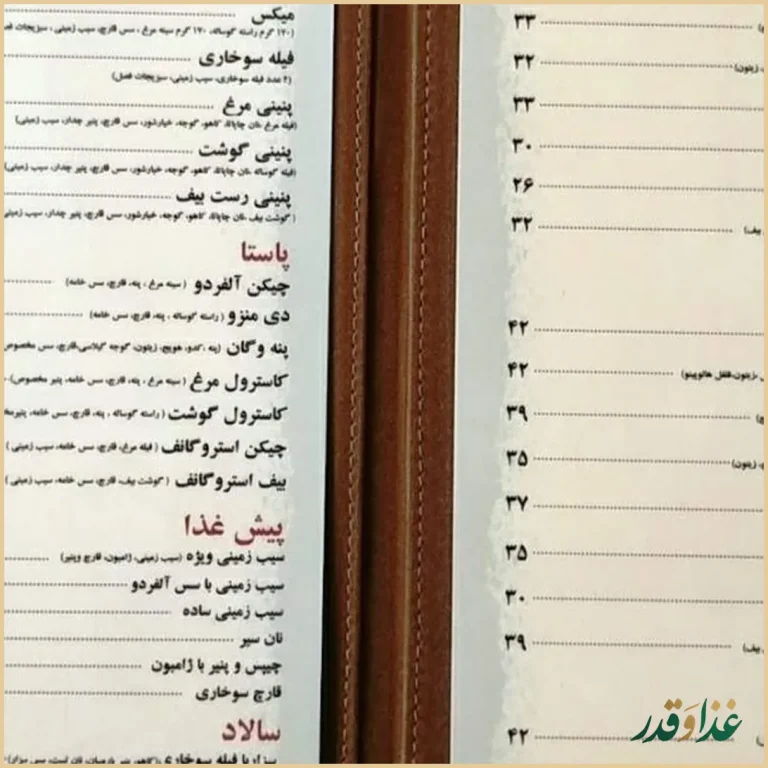 ۳۳
۳۲
، زیتون)
۳۳
۳۰
۲۶
۳۲
بیف)
۴۲
۴۲
، زیتون، فلفل هالوپینو)
۳۹
۳۵
، زیتون)
۳۷
۳۵
۳۰
۳۹
بیف)
۴۲
میکس
(۱۲۰ گرم راسته گوساله، ۱۲۰ گرم سینه مرغ ، سس قارچ، سیب زمینی ، سبزیجات
فیله سوخاری
(۴ عدد فیله سوخاری، سیب زمینی، سبزیجات فصل)
پنینی مرغ
(فیله مرغ ،نان چاپاتا، کاهو، گوجه، خیارشور، سس قارچ، پنیر چدار، سیب زمینی)
پنینی گوشت
(فیله گوساله ،نان چاپاتا، کاهو، گوجه، خیارشور، سس قارچ، پنیر چدار، سیب زمینی)
پنینی رست بیف
( گوشت بیف ،نان چاپاتا، کاهو، گوجه، خیارشور، سس قارچ، پنیر چدار، سیب زمینی
پاستا
چیکن آلفردو ( سینه مرغ ، پنه، قارچ، سس خامه)
دی منزو ( راسته گوساله ، پنه، قارچ، سس خامه)
پنه وگان (پنه ،کدو، هویج، زیتون، گوجه گیلاسی،قارچ، سس مخصوص
کاسترول مرغ ( سینه مرغ ، پنه، قارچ، سس خامه، پنیر مخصوص)
کاسترول گوشت ( راسته گوساله ، پنه، قارچ، سس خامه،
چیکن استروگانف ( فیله مرغ، قارچ، سس خامه، سیب زمینی )
بیف استروگانف ( گوشت بیف، قارچ، سس خامه، سیب زمینی )
پیش غذا
سیب زمینی ویژه (سیب زمینی، ژامبون، قارچ وپنیر)
سیب زمینی با سس آلفردو
سیب زمینی ساده
نان سیر
چیپس و پنیر با ژامبون
قارچ سوخاری
سالاد
سزاربا فیله سوخاری
غذا و قدر